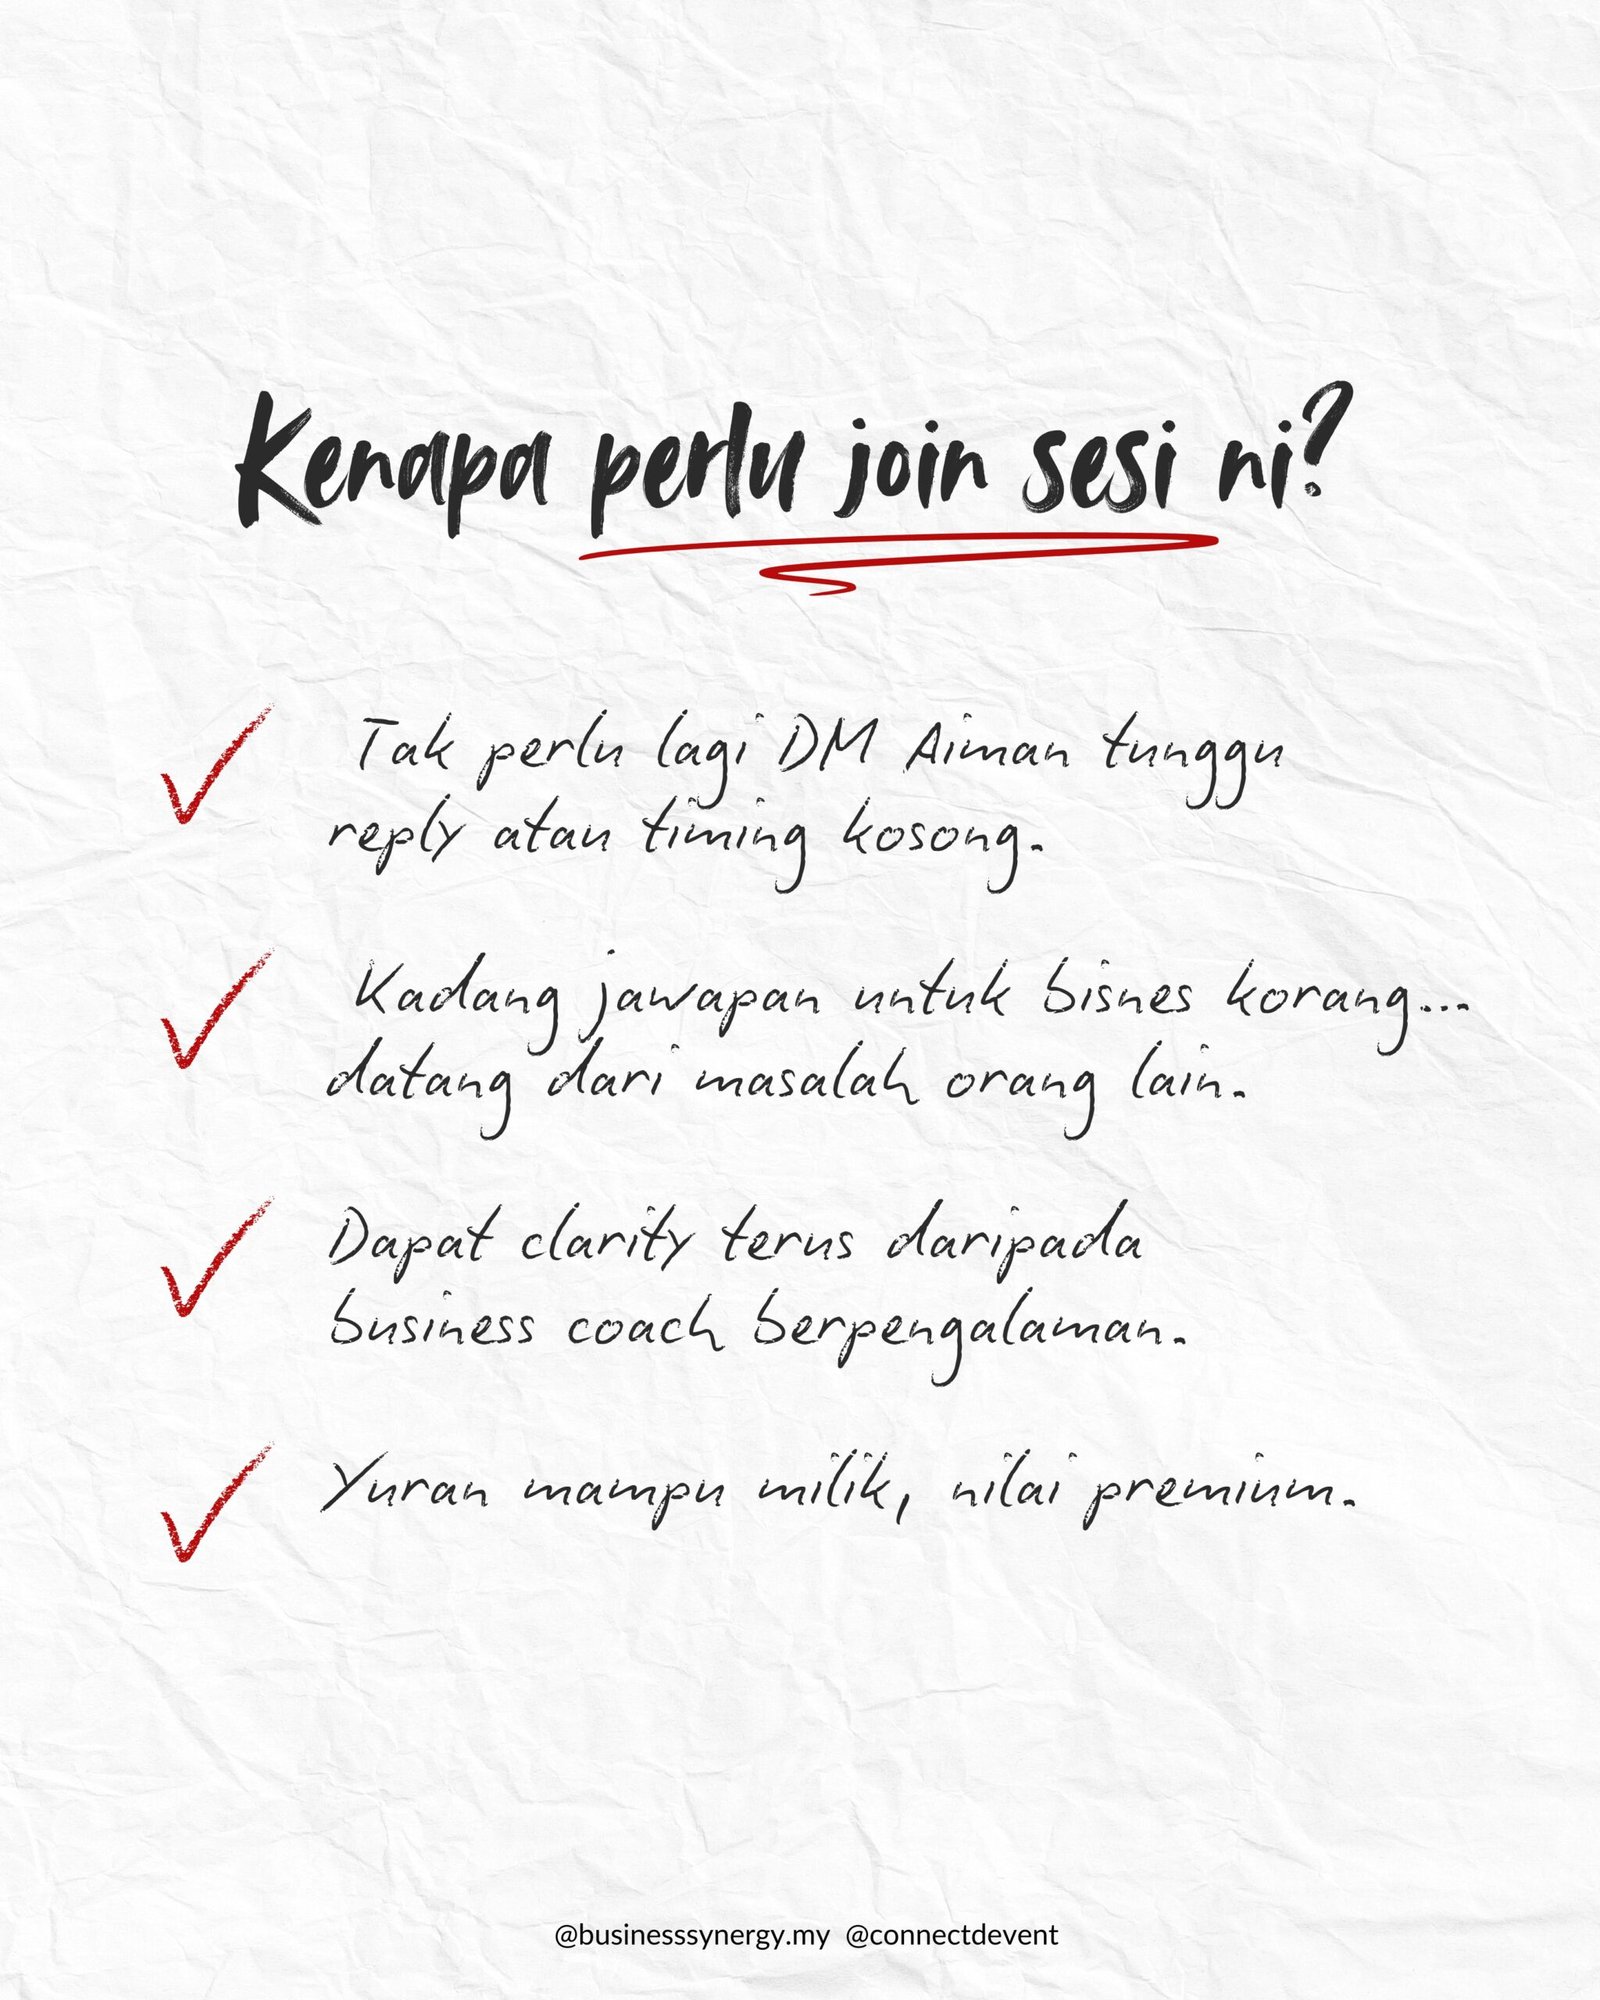 Kenapa perlu join sesi ni?
Tak perlu lagi DM Aiman tunggu
reply atau timing kosong.
Kadang jawapan untuk bisnes korang...
datang dari masalah orang lain.
Dapat clarity terus daripada
business coach berpengalaman.
Yuran mampu milik, nilai premium.
@businesssynergy.my @connectdevent